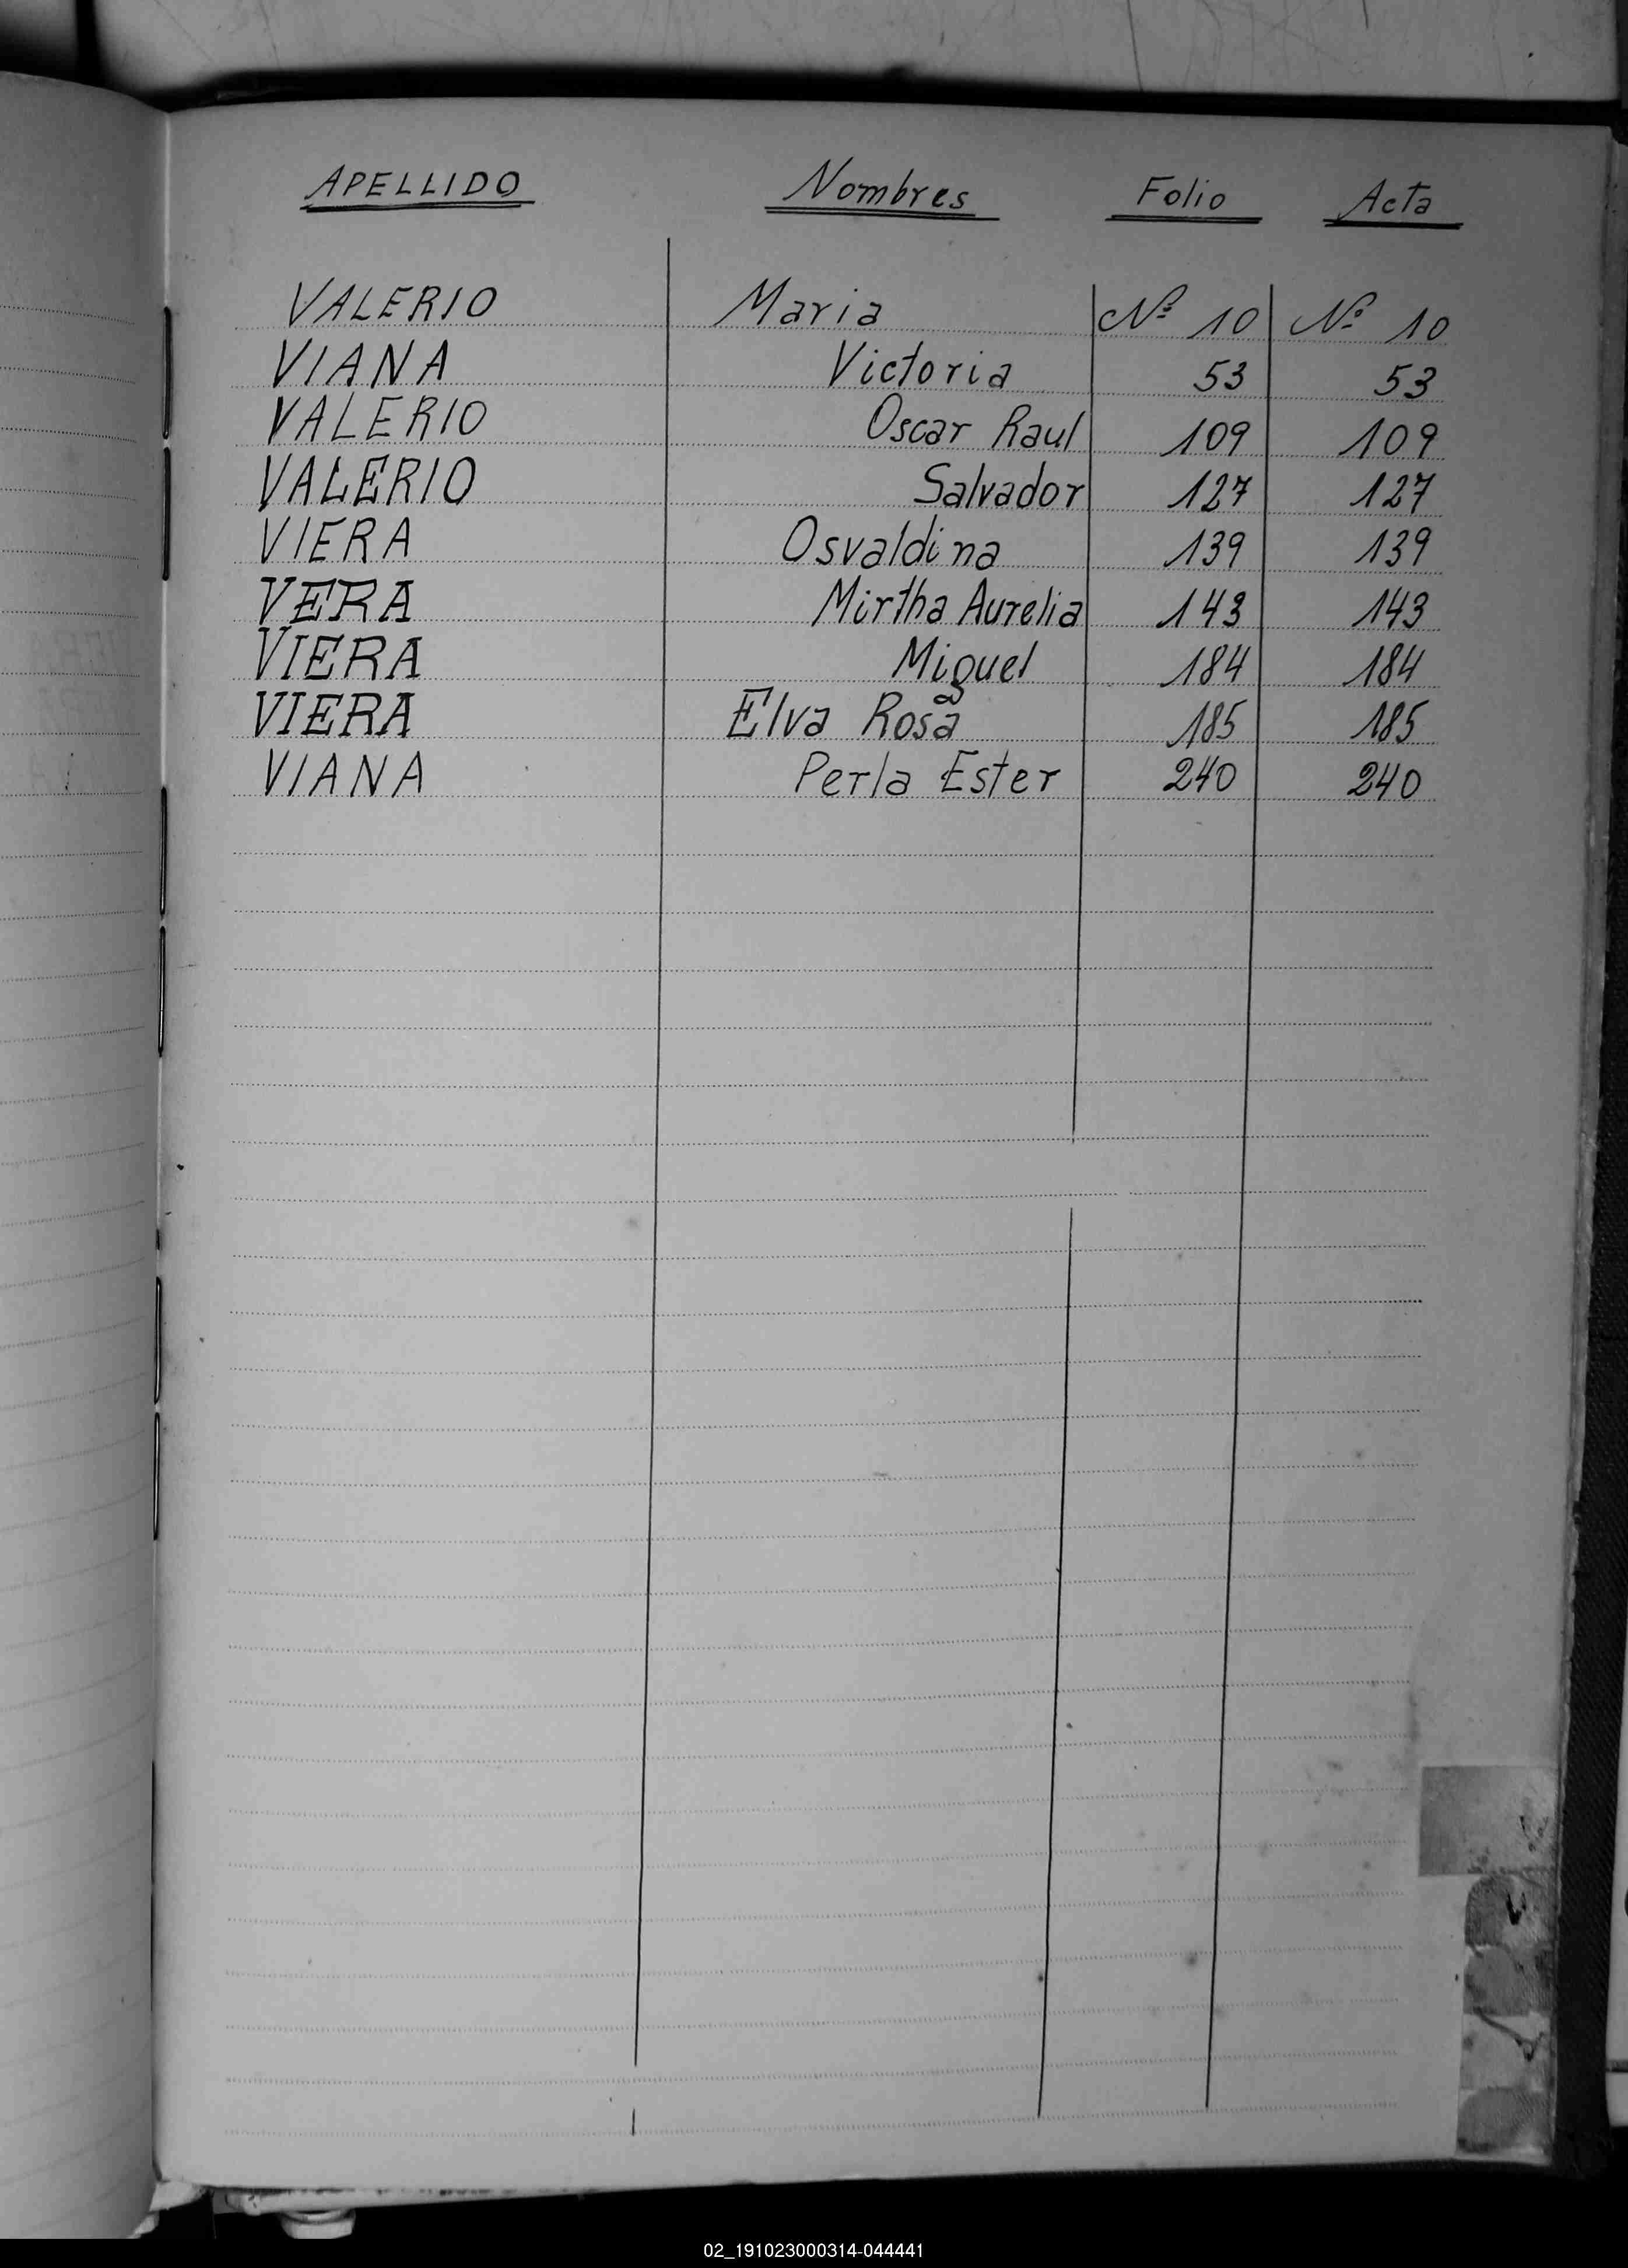 APELLIDO Nombres Folio Acta
VALERIO Maria Nº 10 Nº 10
VIANA Victoria 53 53
VALERIO Oscar Raul 109 109
VALERIO Salvador 127 127
VIERA Osvaldina 139 139
VERA Mirtha Aurelia 143 143
VIERA Miguel 184 184
VIERA Elva Rosa 185 185
VIANA Perla Ester 240 240
V
02_191023000314-044441